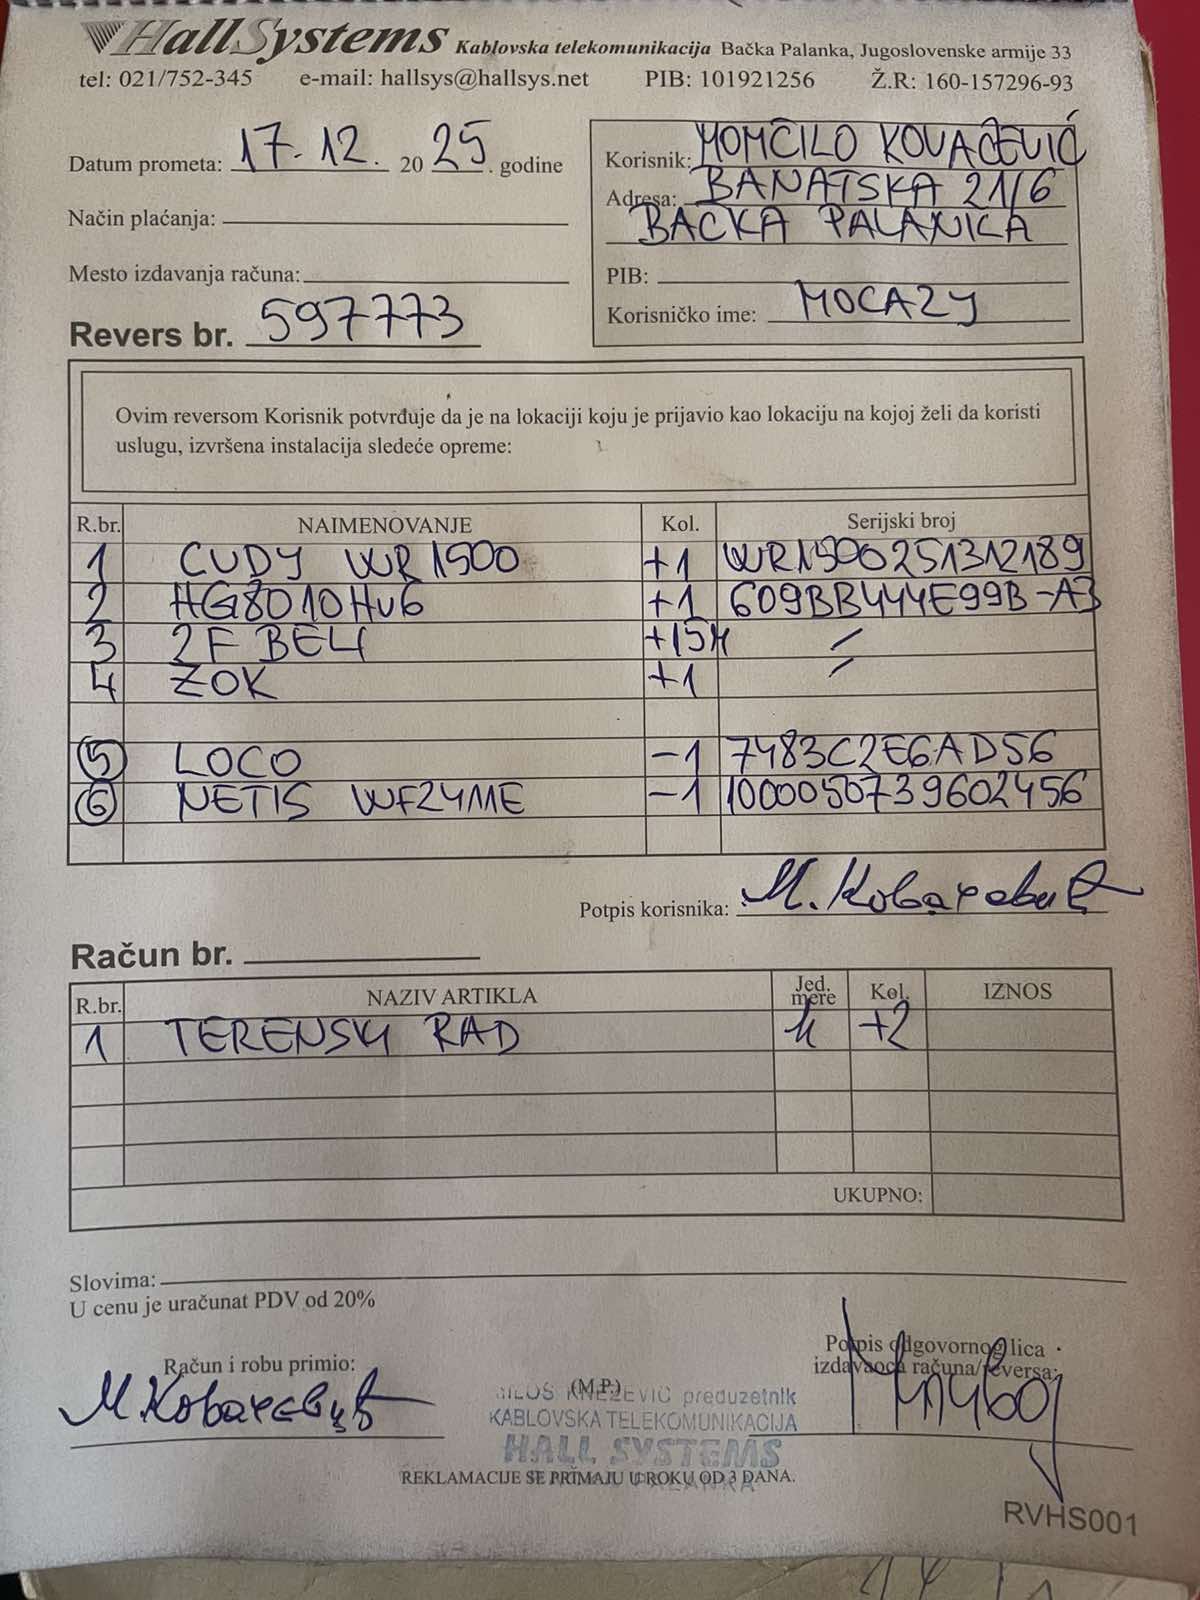 HallSystems Kablovska telekomunikacija Bačka Palanka, Jugoslovenske armije 33
tel: 021/752-345 e-mail: hallsys@hallsys.net PIB: 101921256 Ž.R: 160-157296-93
Datum prometa: 17.12. 2025. godine
Način plaćanja:
Mesto izdavanja računa:
Revers br. 597773
Korisnik: MOMČILO KOVAČEVIĆ
Adresa: BANATSKA 21/6
BACKA PALANKA
PIB:
Korisničko ime: MOCA2Y
Ovim reversom Korisnik potvrđuje da je na lokaciji koju je prijavio kao lokaciju na kojoj želi da koristi
uslugu, izvršena instalacija sledeće opreme:
R.br. NAIMENOVANJE Kol. Serijski broj
1 CUDY WR1500 +1 WR1500251312189
2 HG8010HV6 +1 609BB444E99B-A3
3 2F BELI +15M /
4 ZOK +1 /
5 LOCO -1 7483C2E6AD56
6 NETIS WF24ME -1 1000050739602456
Potpis korisnika: М. Ковачевић
Račun br.
R.br. NAZIV ARTIKLA Jed. mere Kol. IZNOS
1 TERENSKI RAD h +2
UKUPNO:
Slovima:
U cenu je uračunat PDV od 20%
Račun i robu primio:
М. Ковачевић
(M.P.)
MILOŠ KNEŽEVIĆ preduzetnik
KABLOVSKA TELEKOMUNIKACIJA
HALL SYSTEMS
PALANKA
REKLAMACIJE SE PRIMAJU U ROKU OD 3 DANA.
Potpis odgovornog lica
izdavaoca računa/reversa:
RVHS001